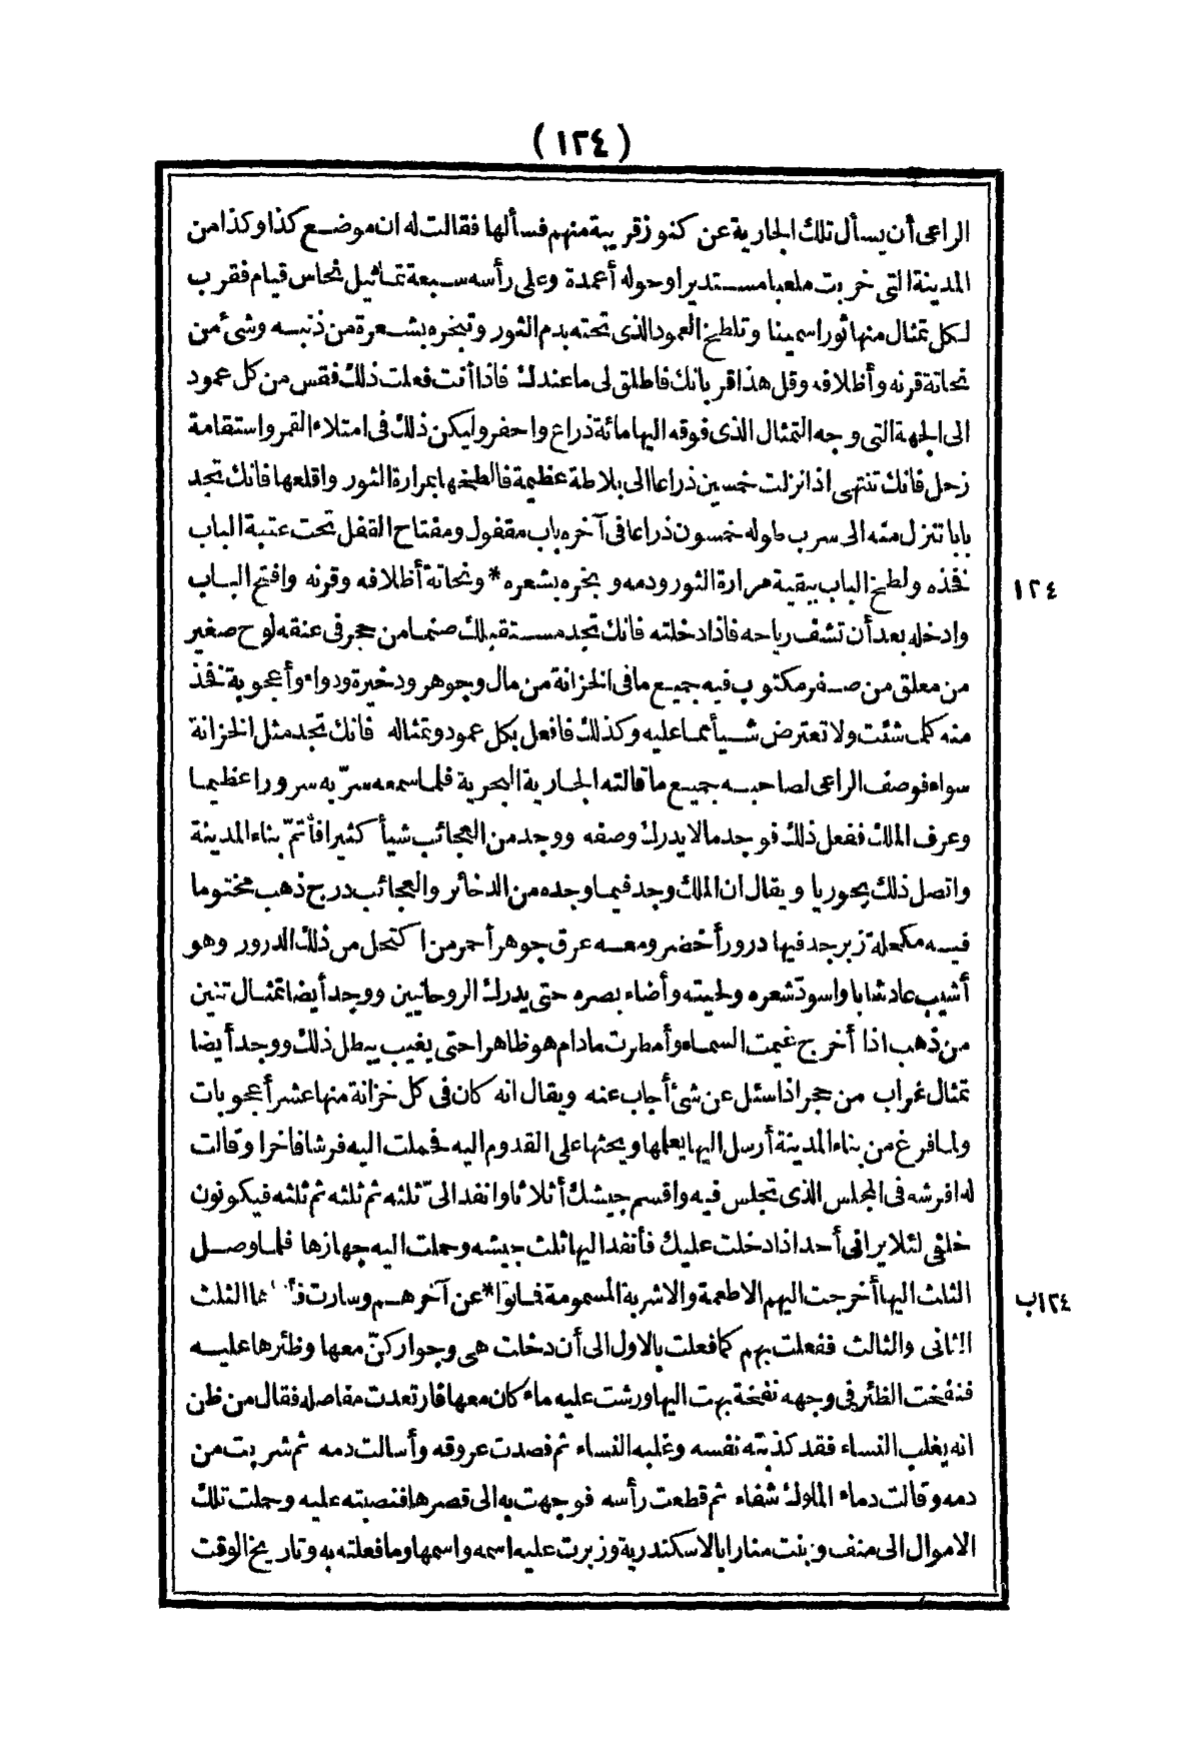 (١٢٤)
الراعى أن يسأل تلك الجارية عن كنوز قريبة منهم فسألها فقالت له ان موضع كذا وكذا من
المدينة التى خربت ملعبا مستديرا وحوله أعمدة وعلى رأسه سبعة تماثيل نحاس قيام فقرب
لكل تمثال منها ثورا سمينا وتلطخ العمود الذى تحته بدم الثور وتبخره بشعرة من ذنبه وشئ من
نحاتة قرنه وأظلافه وقل هذا قربانك فاطلق لى ما عندك فاذا أنت فعلت ذلك فقس من كل عمود
الى الجهة التى وجه التمثال الذى فوقه اليها مائة ذراع واحفر وليكن ذلك فى امتلاء القمر واستقامة
زحل فانك تنتهى اذا نزلت خمسين ذراعا الى بلاطة عظيمة فالطخها بمرارة الثور واقلعها فانك تجد
بابا تنزل منه الى سرب طوله خمسون ذراعا فى آخره باب مقفول ومفتاح القفل تحت عتبة الباب
نفذه ولطخ الباب ببقية مرارة الثور ودمه وبخره بشعره * ونحاتة أظلافه وقرنه وافتح الباب
١٢٤
وادخله بعد أن تشف رياحه فاذا دخلته فانك تجد مستقبلك صنما من حجر فى عنقه لوح صغير
من معلق من صفر مكتوب فيه جميع ما فى الخزانة من مال وجوهر وذخيرة ودواء وأعجوبة نفذ
منه كلما شئت ولا تعترض شيأ مما عليه وكذلك فافعل بكل عمود وتمثاله فانك تجد مثل الخزانة
سواء فوصف الراعى لصاحبه جميع ما قالته الجارية البحرية فلما سمعه سرّ به سرورا عظيما
وعرف الملك ففعل ذلك فوجد مالا يدرك وصفه ووجد من العجائب شيأ كثيرا فأتمّ بناء المدينة
واتصل ذلك بحوريا ويقال ان الملك وجد فيما وجده من الذخائر والعجائب درج ذهب مختوما
فيه مكحلة زبرجد فيها درور أخضر ومعه عرق جوهر أحمر من اكتحل من ذلك الدرور وهو
أشيب عاد شابا واسودّ شعره ولحيته وأضاء بصره حتى يدرك الروحانيين ووجد أيضا تمثال تنين
من ذهب اذا أخرج غيمت السماء وأمطرت مادام هو ظاهرا حتى يغيب يبطل ذلك ووجد أيضا
تمثال غراب من حجر اذا سئل عن شئ أجاب عنه ويقال انه كان فى كل خزانة منها عشر أعجوبات
ولما فرغ من بناء المدينة أرسل اليها يعلمها ويحثها على القدوم اليه فحملت اليه فرشا فاخرا وقالت
له افرشه فى المجلس الذى تجلس فيه واقسم جيشك أثلاثا وانفد الىّ ثلثه ثم ثلثه ثم ثلثه فيكونون
خلفى لئلا يرانى أحد اذا دخلت عليك فأنفد اليها ثلث جيشه وحملت اليه جهازها فلما وصل
الثلث اليها أخرجت اليهم الاطعمة والاشربة المسمومة فماتوا * عن آخرهم وسارت الثلث
١٢٤ب
الثانى والثالث ففعلت بهم كما فعلت بالاول الى أن دخلت هى وجوار كنّ معها وظئرها عليه
فنفخت الظئر فى وجهه نفخة بهت اليها ورشت عليه ماء كان معها فارتعدت مفاصله فقال من ظن
انه يغلب النساء فقد كذبته نفسه وغلبه النساء ثم فصدت عروقه وأسالت دمه ثم شربت من
دمه وقالت دماء الملوك شفاء ثم قطعت رأسه فوجهت به الى قصرها فنصبته عليه وحملت تلك
الاموال الى منف وبنت منارا بالاسكندرية وزبرت عليه اسمه واسمها وما فعلته به وتاريخ الوقت